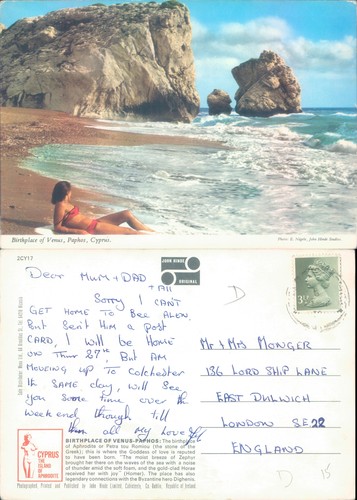 Birthplace of Venus, Paphos, Cyprus.
Photo: E. Nägele, John Hinde Studios.
2CY17
JOHN HINDE
ORIGINAL
3½P
Dear Mum + DAD
+ All
Sorry I CAN'T
GET HOME TO BEE ALEN,
But Sent Him A post
CARD, I WILL BE HOME
ON Thur 27th, But AM
MOVING UP TO Colchester
th SAME day, will see
you some time over the
week end, though till
then all my love
Mr + Mrs MONGER
136 LORD SHIP LANE
EAST DULWICH
LONDON SE.22
ENGLAND
D
CYPRUS
THE
ISLAND
OF
APHRODITE
BIRTHPLACE OF VENUS-PAPHOS: The birthplace
of Aphrodite or Petra tou Romiou (the stone of the
Greek); this is where the Goddess of love is reputed
to have been born. "The moist breeze of Zephyr
brought her there on the waves of the sea with a noise
of thunder amid the soft foam, and the gold-clad Horae
received her with joy" (Homer). The place has also
legendary connections with the Byzantine hero Dighenis.
Photographed Printed and Published by John Hinde Limited, Cabinteely, Co. Dublin, Republic of Ireland
15